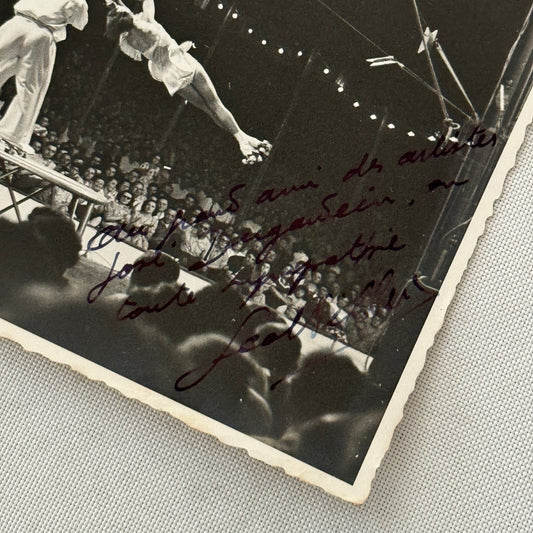 Au grand ami des artistes
José Burgaudein, en
toute sympathie